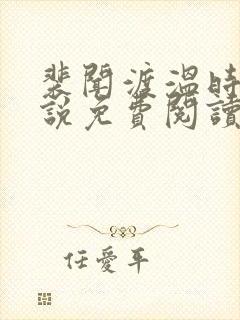 裴聞渡溫時
說免費閱讀
任愛平